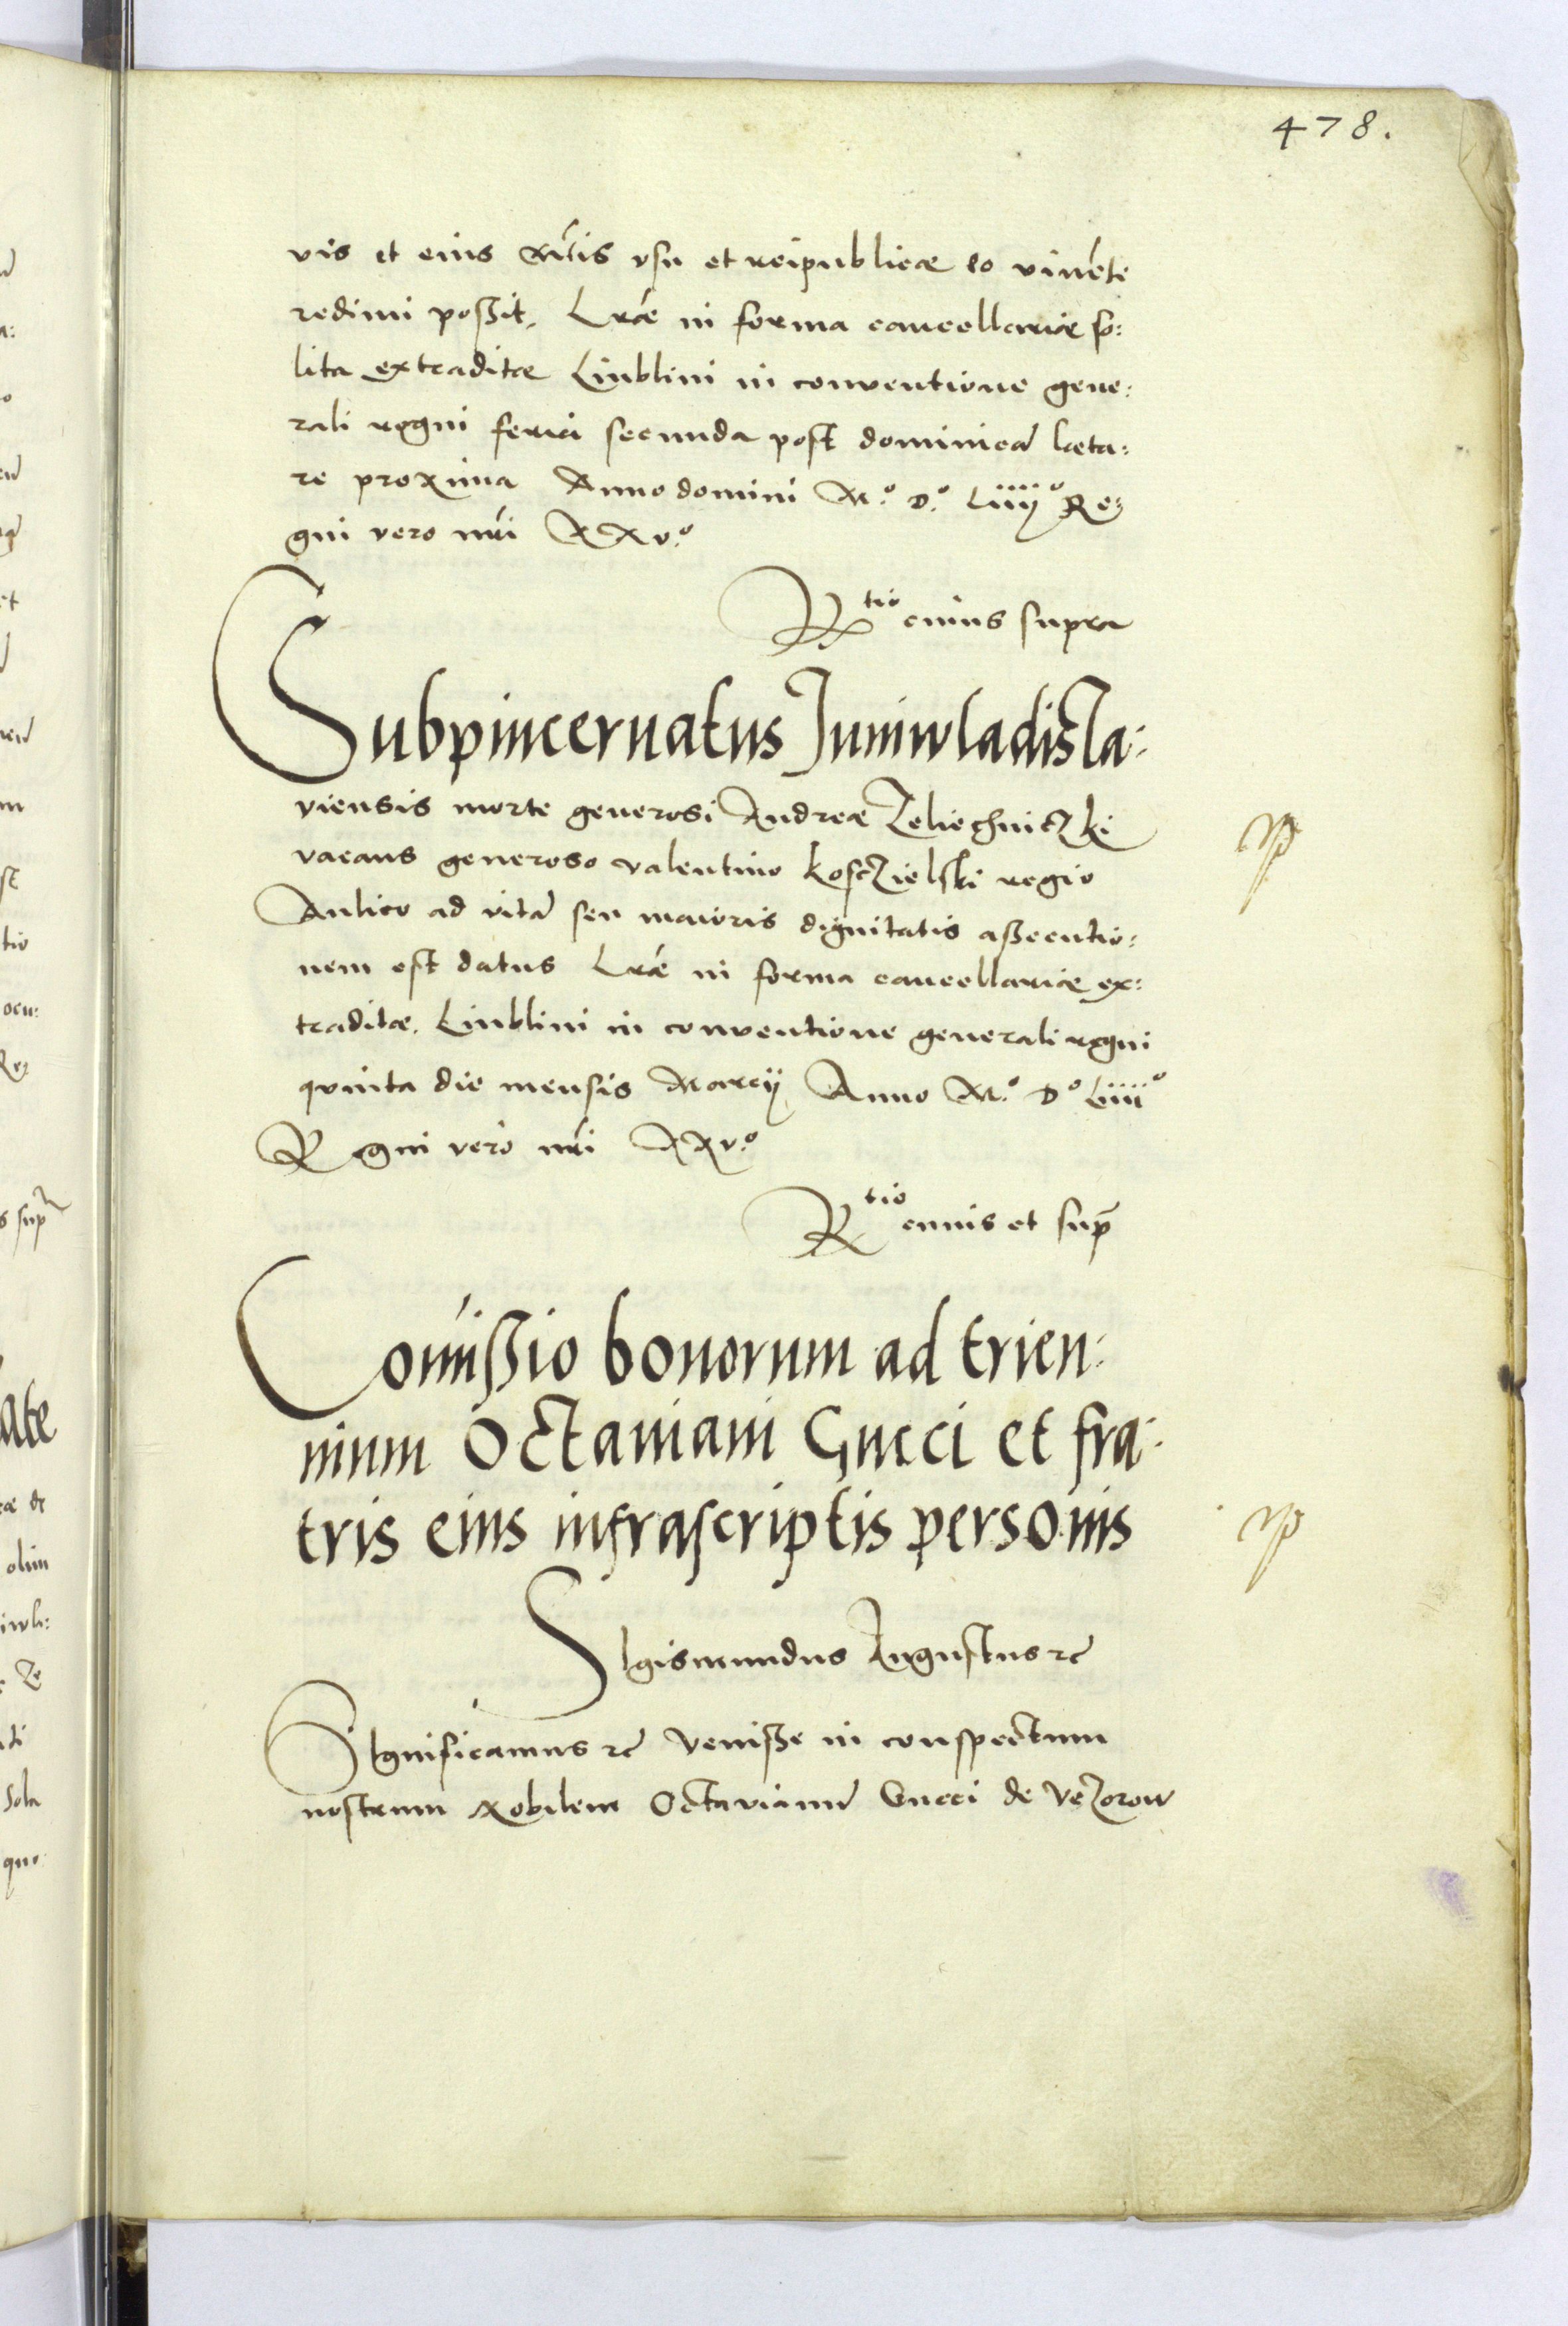 478.
vis et eius Mtis vsu et reipublicæ eo viuēte
redimi possit. Lræ in forma cancellariæ so:
lita extraditæ Liublini in conventione gene:
rali regni feria secunda post dominicā læta:
re proxima Anno domini M.º D.º Liiijº Re:
gni vero nri XXv.º
Rtio cuius supra
Subpincernatus Juniwladisla:
viensis morte generosi Andreæ Zeliechniczki
vacans generoso valentino Kosczielski regio
Aulico ad vitā seu maioris dignitatis assecutio:
nem est datus Lræ in forma cancellariæ ex:
traditæ. Liublini in conventione generali regni
qvinta die mensis Marcij Anno M.º Dº Liiiiº
Regni vero nri XXv.º
Rtio cuuis et sup
Comissio bonorum ad trien:
nium Octaviani Gucci et fra:
tris eius infrascriptis personis
SIgismundus Augustus rc
SIgnificamus rc Venisse in conspectum
nostrum Nobilem Octavianū Gucci de Vezorow